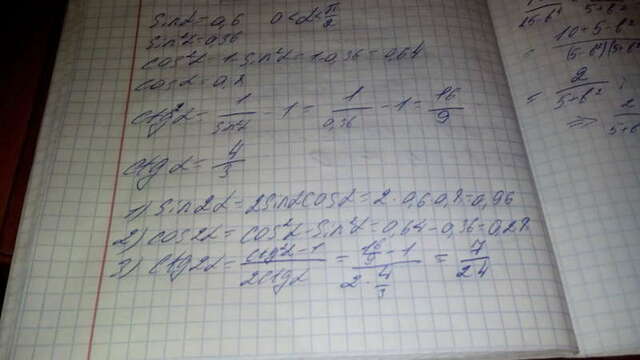 sinα=0,6 0<α<π/2
sin²α=0,36
cos²α=1-sin²α=1-0,36=0,64
cosα=0,8
ctg²α=1/sin²α-1=1/0,36-1=16/9
ctgα=4/3
1) sin2α=2sinαcosα=2·0,6·0,8=0,96
2) cos2α=cos²α-sin²α=0,64-0,36=0,28
3) ctg2α=(ctg²α-1)/(2ctgα)=(16/9-1)/(2·4/3)=7/24
= 2/(5+b²)